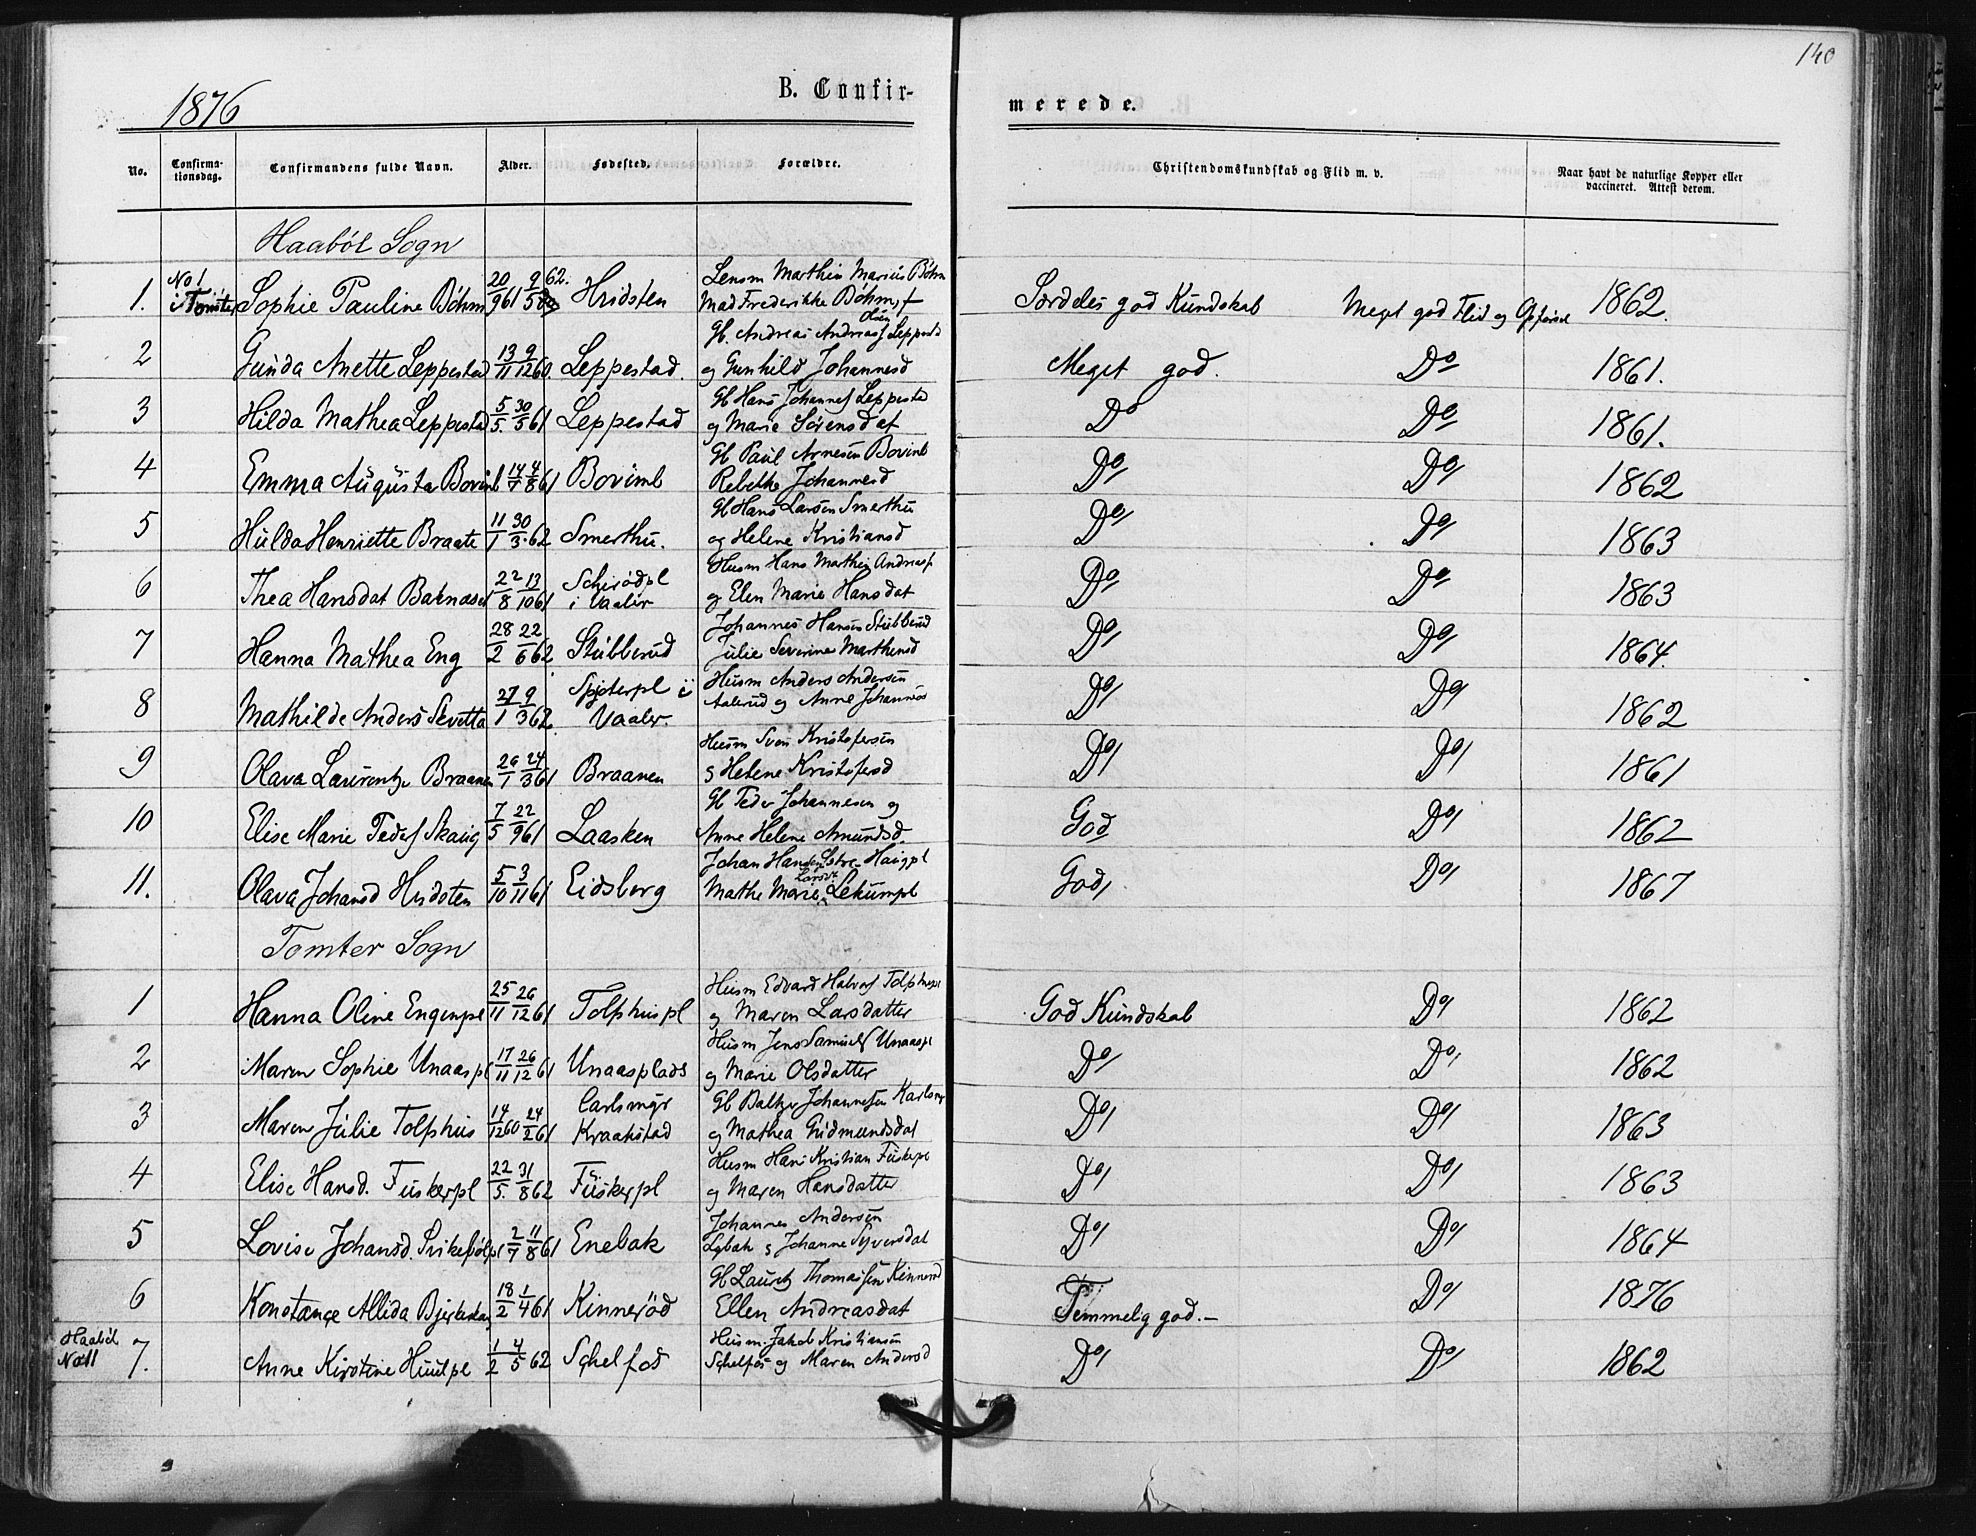 140
1876
B. Confir-
merede.
No.
Confirma-
tionsdag.
Confirmandens fulde Navn.
Alder.
Fødested.
Forældre.
Christendomskundskab og Flid m. v.
Naar havt de naturlige Kopper eller
vaccineret. Attest derom.
Haabøl Sogn
1. No 1 i Tomter Sophie Pauline Bøhm 20/9 61 9/5 62. Hridsten Lensm Marthin Marius Bøhm
Mad Frederikke Bøhm Særdeles god Kundskab Meget god Flid og Opførsel 1862.
2 Gunda Anette Leppestad 13/11 9/12 60. Leppestad. Gb. Andreas Andreass Leppestad
og Gunhild Johannesd Meget god. Do 1861.
3 Hilda Mathea Leppestad 5/5. 30/5 61 Leppestad Gb Hans Johannes Leppestad
og Marie Sørensdat Do Do 1861.
4 Emma Augusta Bovimb 14/7 4/8 61 Bovimb Gb Paul Arnesen Bovimb
Rebekke Johannesd Do Do 1862
5 Hulda Henriette Braate 11/1 30/3 62 Smerthu. Gb Hans Larsen Smerthu
og Helene Kristiansd Do Do 1863
6 Thea Hansdat 22/8 13/10 61 i Vaaler Husm Hans Marthin Andreass
og Elen Marie Hansdat Do Do 1863
7 Hanna Mathea Eng 28/2 22/6 62 Stubberud Johannes Hansen Stubberud
Julie Severine Marthensd Do Do 1864.
8 Mathilde Anders 27/1 9/3 62 i Vaaler. Husm Anders Andersen
Aalerud og Anne Johannes Do Do 1862
9 Olava Laurentze Braanen 26/1 24/3 61 Braanen Husm Sven Kristofersen
Helene Kristofersd Do Do 1861
10 Elise Marie Skaug 7/5 22/9 61 Laasken Gb Johannesen og
Anne Helene Amundsd. God Do 1862
11. Olava Johansd Hridsten 5/10 3/11 61 Eidsberg Johan Hansen Haugpl
Mathe Marie Larsdt Lekumpl God Do 1867
Tomter Sogn
1 Hanna Oline Engenpl 25/11 26/12 61 Tolphuspl Husm Edvard Halvors
og Maren Larsdatter God Kundskab Do 1862
2 Maren Sophie Unaaspl 17/11 26/12 61 Unaasplads Husm Jens Samuels Unaaspl
og Marie Olsdatter Do Do 1862
3 Maren Julie Tolphus 14/12 60 24/2 61 Carlsmyr
Kraakstad Gb Baltzer Johannesen
og Mathea Gudmundsdat Do Do 1863
4 Elise Hansd. Fuskerpl 22/5. 31/8 62 Fuskerpl Husm Hans Kristian Fuskerpl
og Maren Hansdatter Do Do 1863
5 Lovise Johansd. 2/7 11/8 61 Enebak Johannes Andersen
Johanne Syversdat Do Do 1864
6 Konstance Allida 18/2 1/4 61 Kinnerød Gb Lauritz Thomassen Kinnerød
Ellen Andreasdat Temmelg god. Do 1876
Haabøl
No 11 7. Anne Kirstine Huulpl 1/2 4/5 62 Schelfos Husm. Jakob Kristiansen
Schelfos og Maren Andersd Do Do 1862